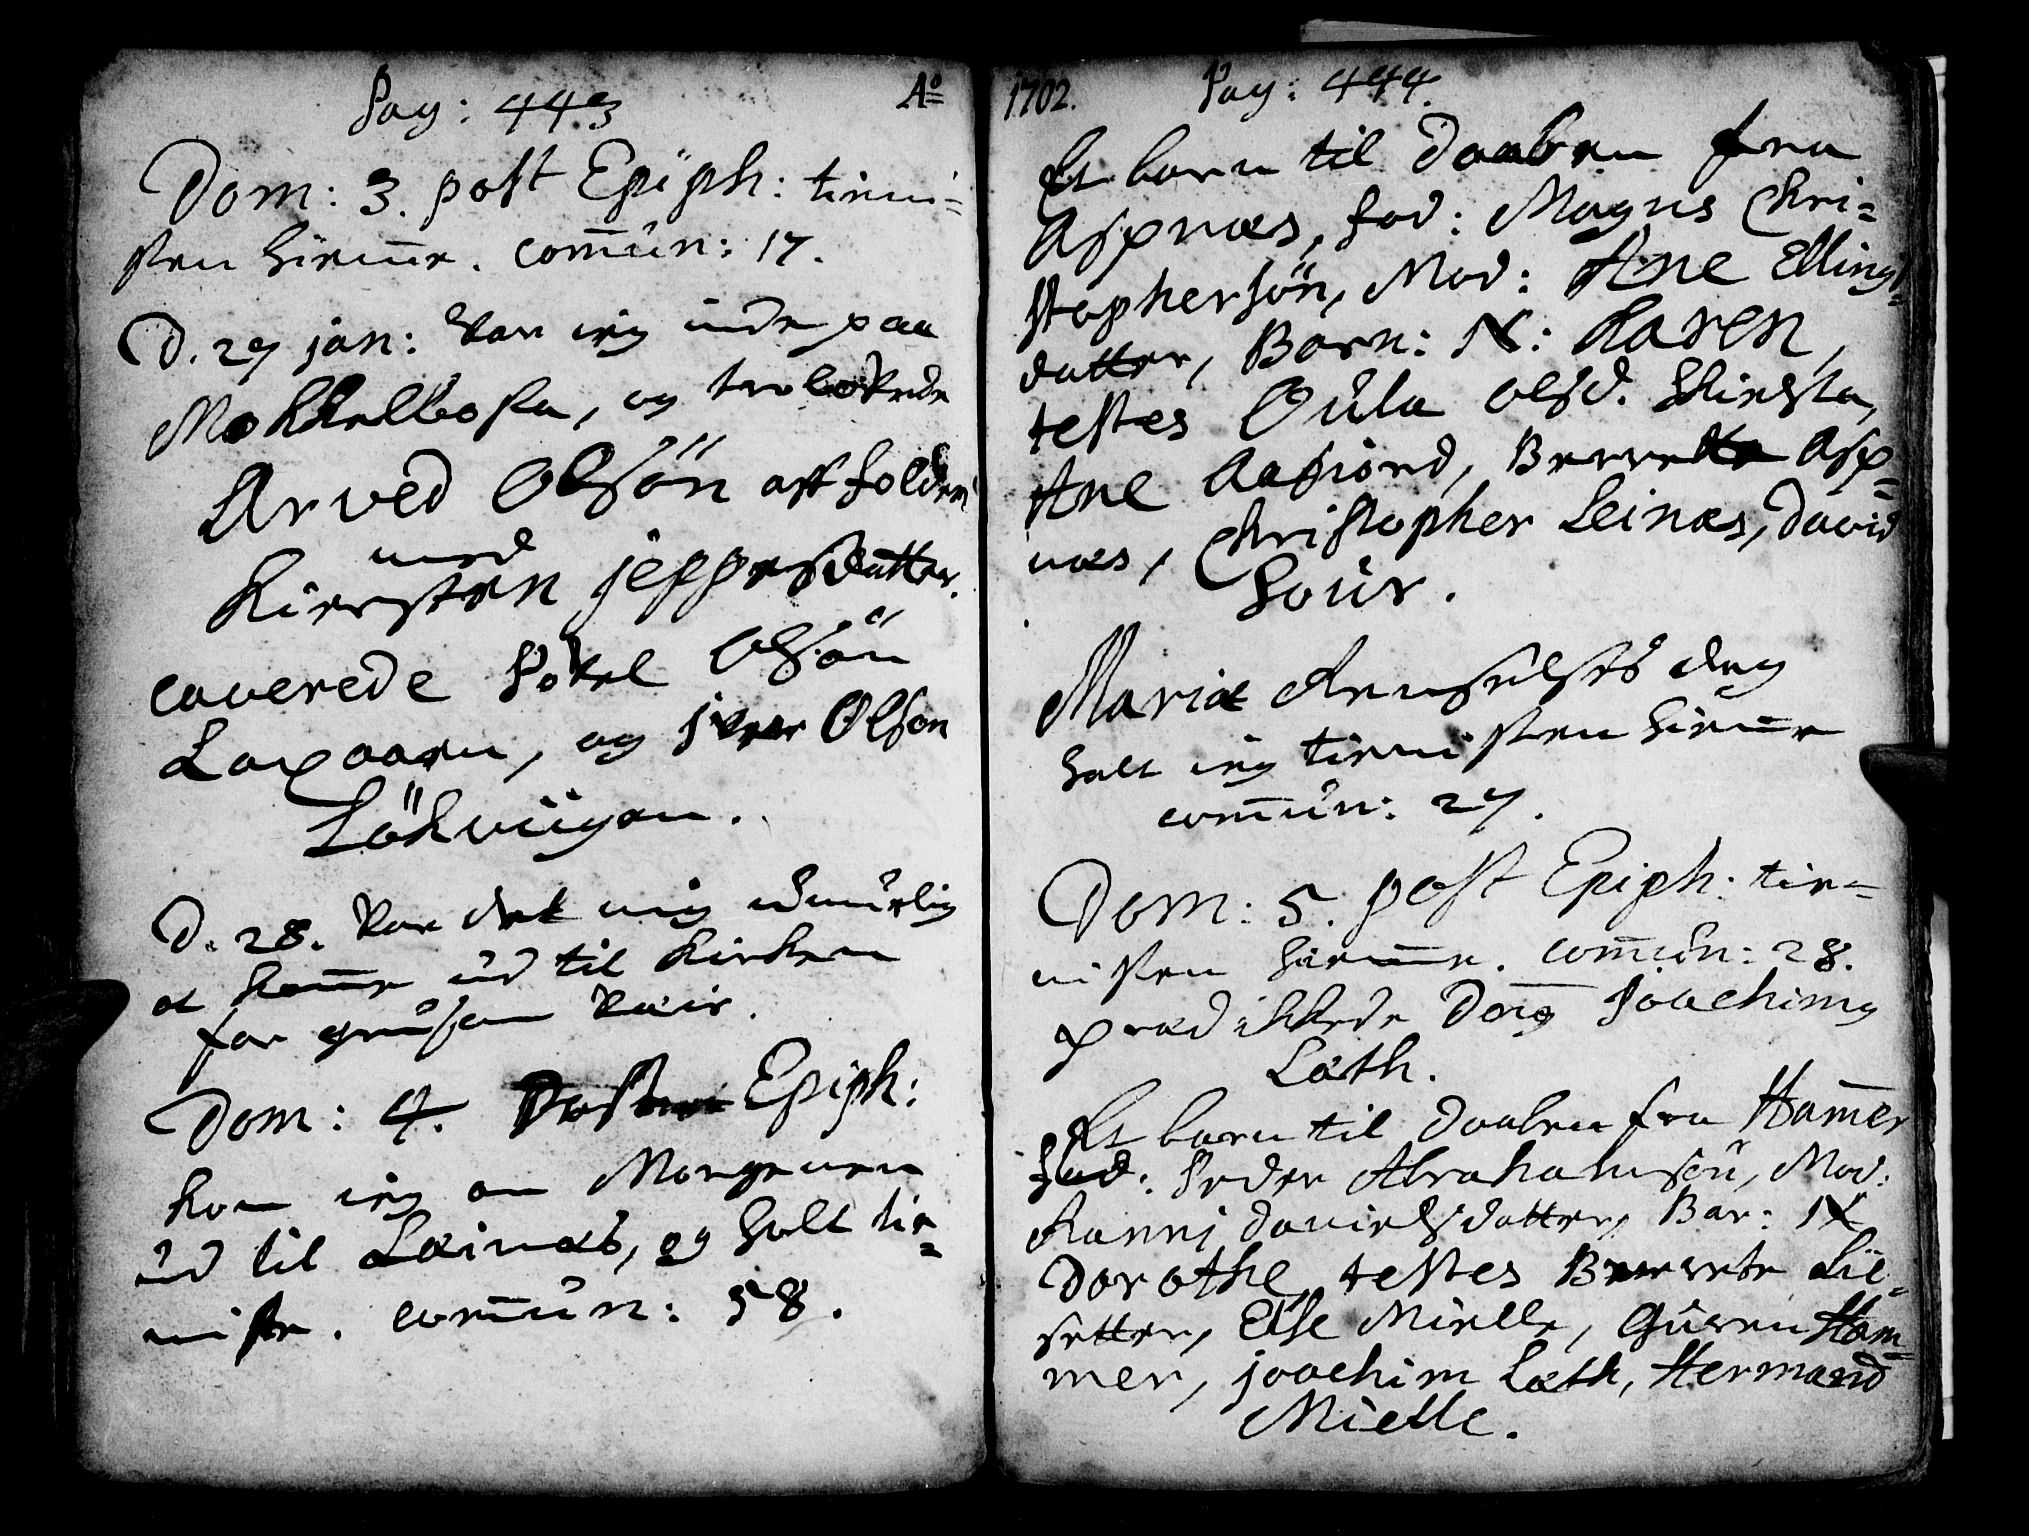 Pag: 443
Aº
Dom: 3. post Epiph: tieni=
sten hiem̄e. com̄un: 17.
D. 27 jan: var ieg inde paa
Mokkelbosta, og trolovede
Arved Olsön aff folden
med
Kiersten jeppesdatter.
caverede Povel Olsön
Laxaaen, og jver Olson
Lökviigen.
D. 28. var det mig umuelig
at kom̄e ud til Kirken
for grusom veir.
Dom: 4. Post Epiph:
kom ieg om Morgenen
ud til Leinæs, og holt tie=
niste. com̄un: 58.
1702.
Pag: 444.
Et barn til Daaben fra
Aspnæs, fad: Magns Chri=
stophersön, Mod: Ane Ellings=
datter, Barn: N: Karen,
testes Oula olsd. Skiefsta,
Ane Aafiord, Berrette Asp=
næs, Christopher Leinæs, David
Houir.
Mariæ Renselses dag
holt ieg tienisten hiem̄e
com̄un: 27.
Dom: 5. post Epiph: tie=
nisten hiem̄e. com̄un: 28.
prædikkede Joachimg
Læth.
Et barn til Daaben fra Ham̄er
fad: Peder Abrahamsön, Mod:
Kanni danielsdatter, Bar: N
Dorothe, testes Berrete Lil=
setter, Else Mielle, Guren Ham=
mer, joachim Læth, Hermand
Mielle.